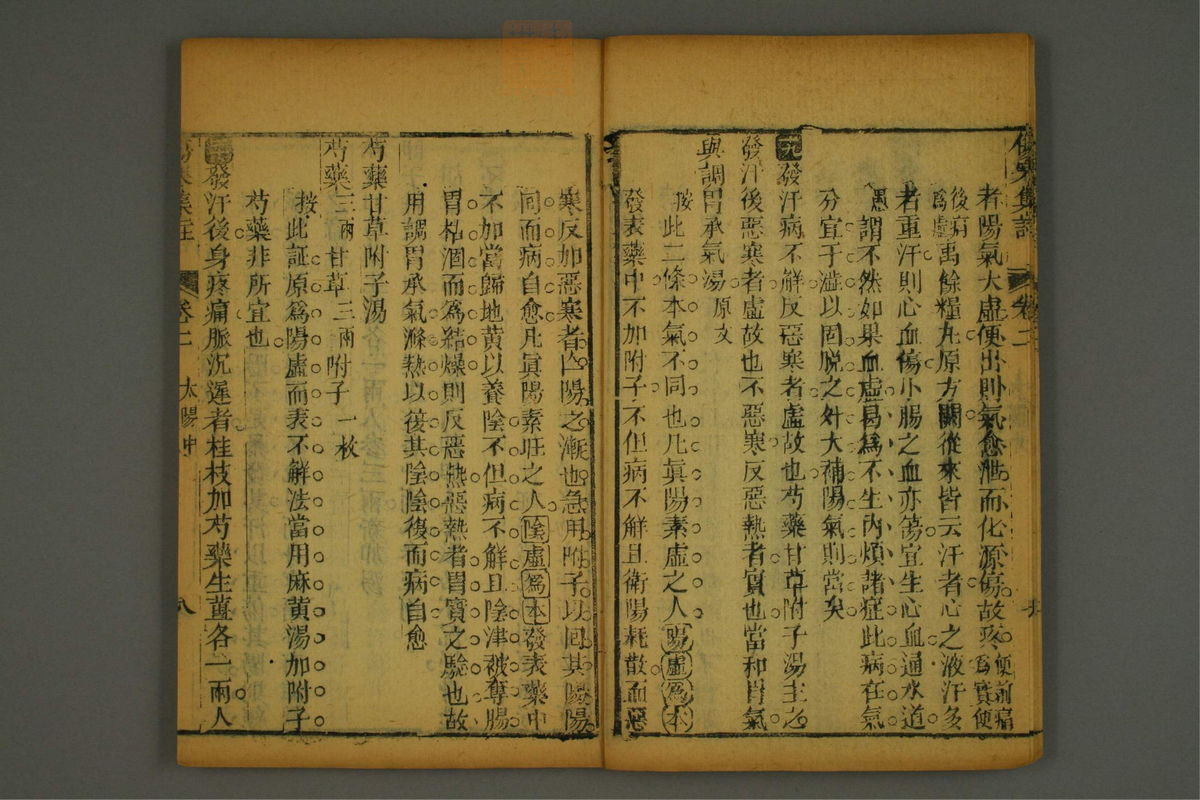 者陽氣大虛便出則氣愈泄而化源傷故疼便前痛爲實便
後病爲虛禹餘糧丸原方闕從來皆云汗者心之液汗多
者重汗則心血傷小腸之血亦傷宜生心血通水道
愚謂不然如果血虛曷爲不生內煩諸症此病在氣
分宜于澁以固脫之外大補陽氣則當矣
九發汗病不解反惡寒者虛故也芍藥甘草附子湯主之
發汗後惡寒者虛故也不惡寒反惡熱者實也當和胃氣
與調胃承氣湯原文
按此二條本氣不同也凡眞陽素虛之人陽虛爲本
發表藥中不加附子不但病不解且衛陽耗散而惡
寒反加惡寒者亡陽之漸也急用附子以回其陽陽
回而病自愈凡眞陽素旺之人陰虛爲本發表藥中
不加當歸地黃以養陰不但病不解且陰津被奪腸
胃枯涸而爲結燥則反惡熱惡熱者胃實之驗也故
用調胃承氣滌熱以復其陰陰復而病自愈
芍藥甘草附子湯
芍藥三兩 甘草三兩 附子一枚
按此証原爲陽虛而表不解法當用麻黃湯加附子
芍藥非所宜也
發汗後身疼痛脈沉遲者桂枝加芍藥生薑各一兩人
卷二
太陽中
八
卷二